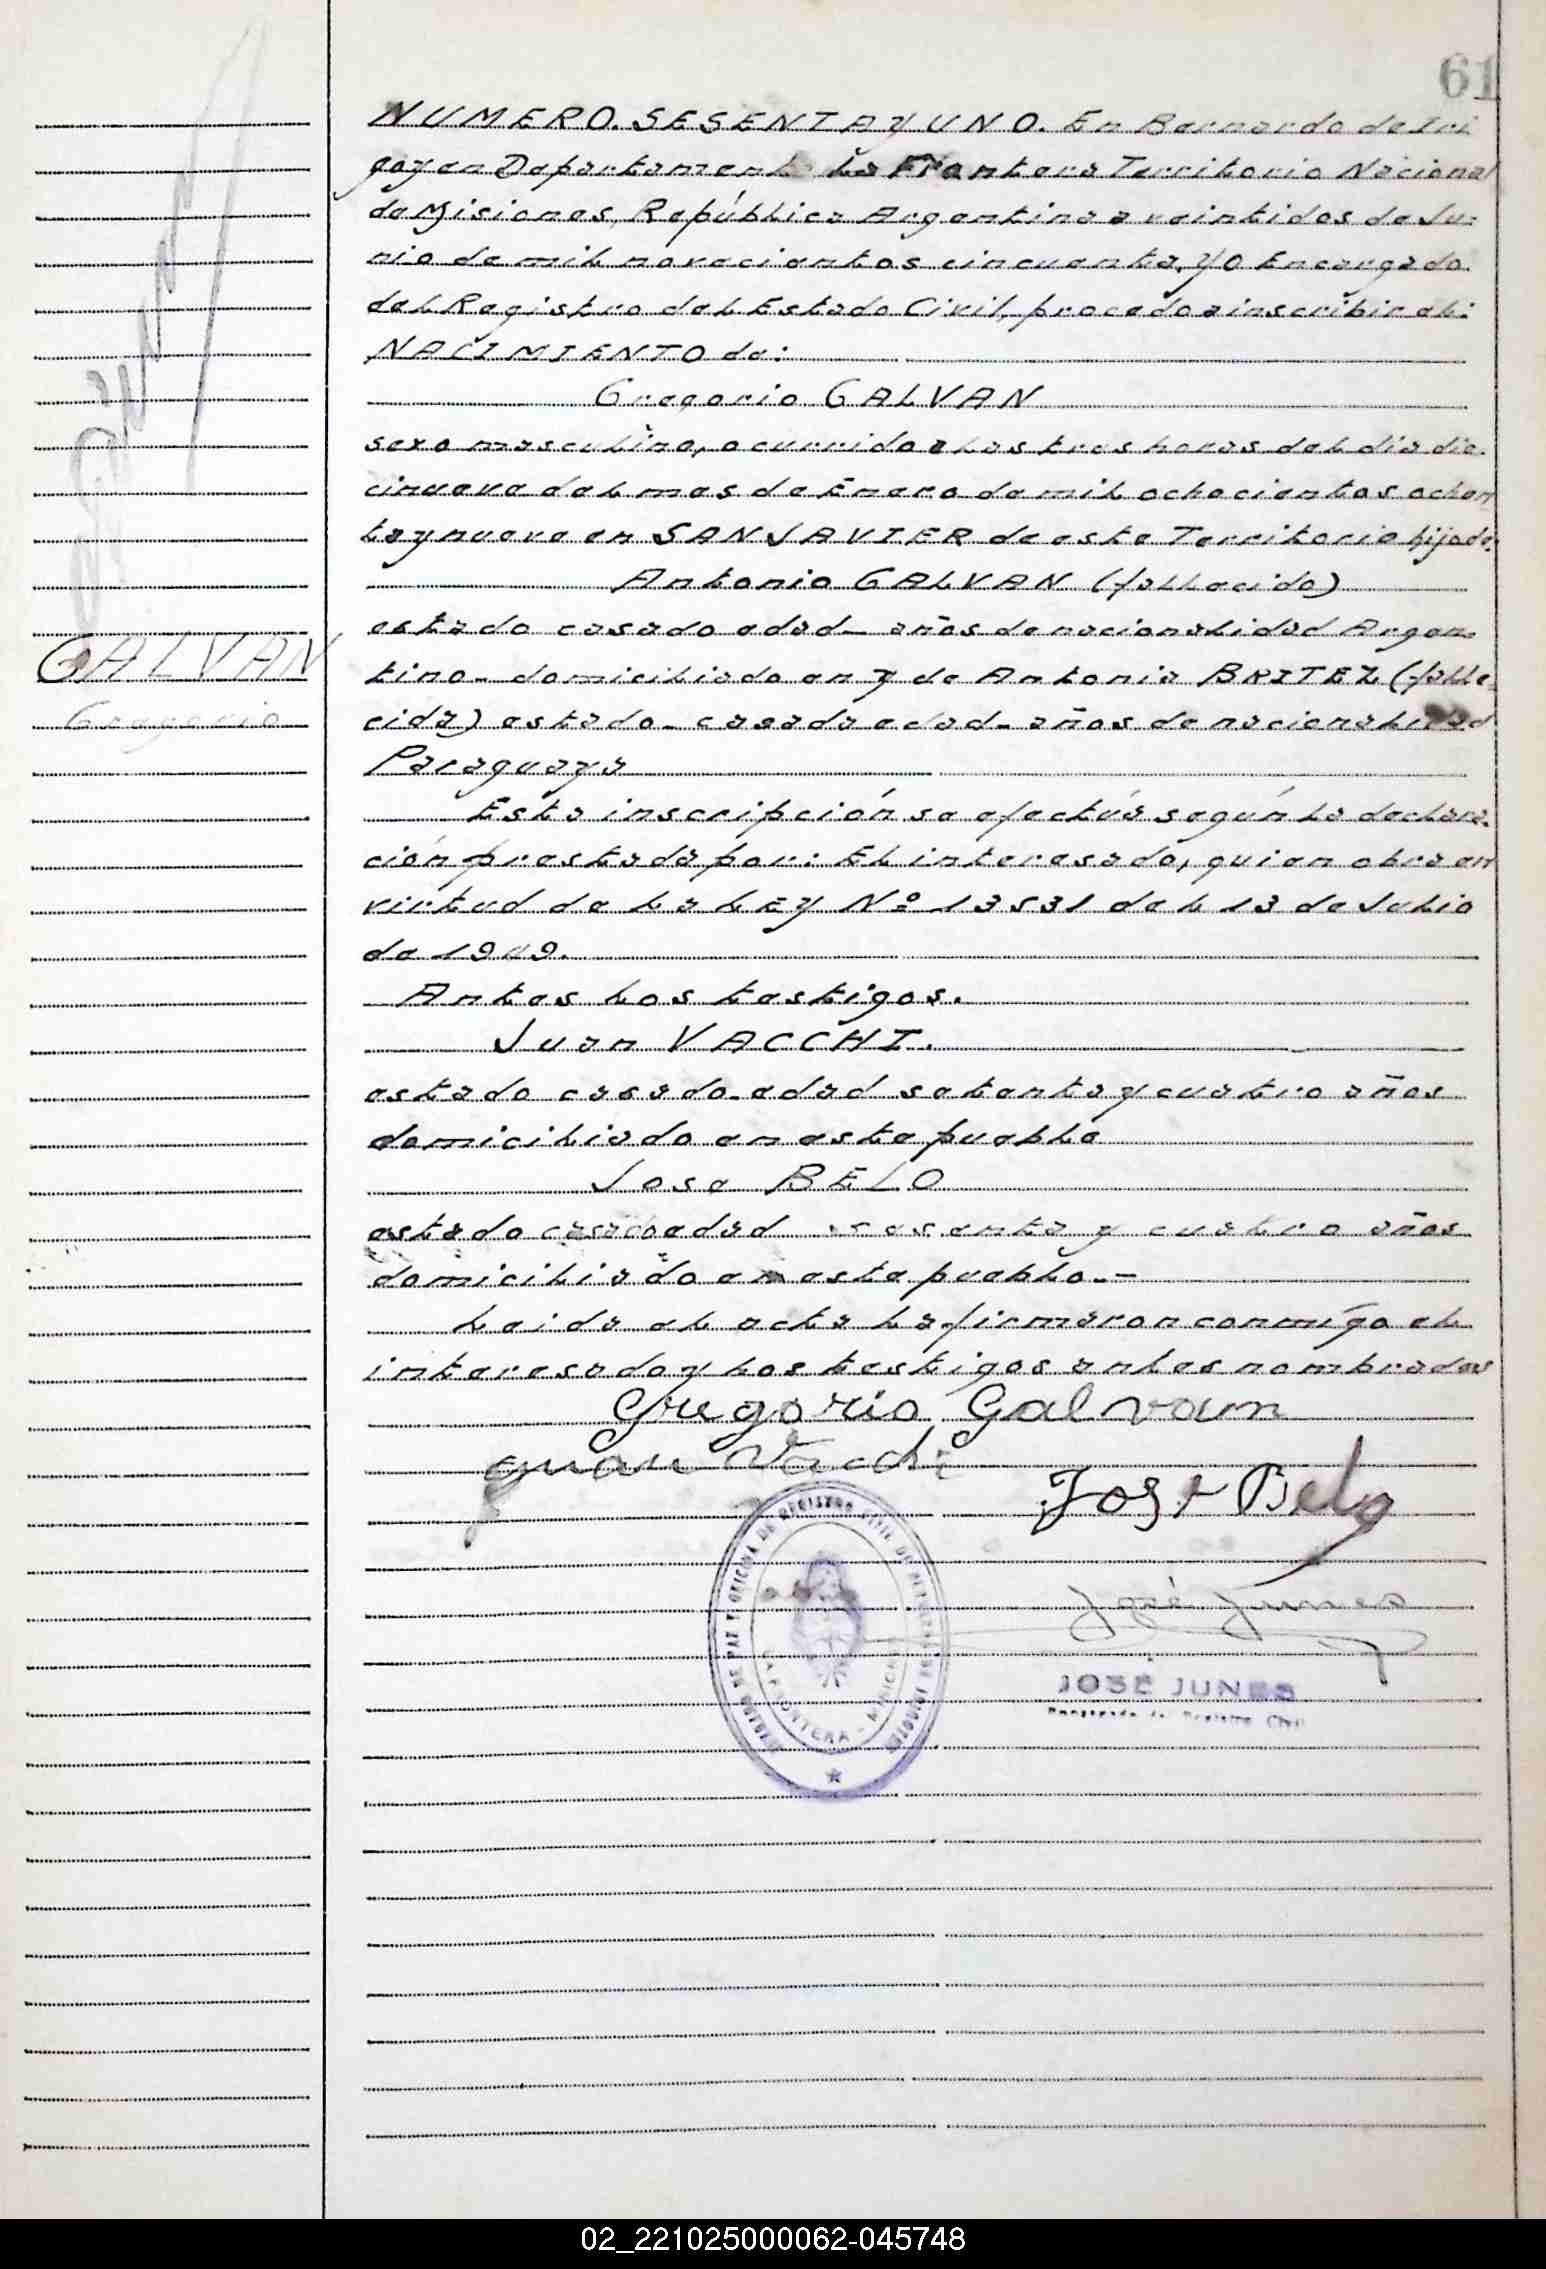 61
NUMERO. SESENTA y UNO. En Bernardo de Iri
goyen Departamento La Frontera Territorio Nacional
de Misiones, República Argentina a veintidos de Ju-
nio de mil novecientos cincuenta, yo Encargado
del Registro del Estado Civil, procedo a inscribir el:
NACIMIENTO de:
Gregorio GALVAN
sexo masculino, ocurrido a las tres horas del día die-
cinueve del mes de Enero de mil ochocientos ochen
ta y nueve en SAN JAVIER de este Territorio hijo de:
Antonio GALVAN (fallecido)
estado casado edad - años de nacionalidad Argen-
GALVAN
tino - domiciliado en y de Antonia BRITEZ (falle-
Gregorio
cida) estado - casada edad - años de nacionalidad
Paraguaya
Esta inscripción se efectúa según la declara-
ción prestada por: El interesado, quien obra en
virtud de la LEY Nº 13531 del 13 de Julio
de 1949.
Antes los testigos.
Juan VACCHI.
estado casado - edad setenta y cuatro años
domiciliado en este pueblo
Jose BELO
estado casado edad sesenta y cuatro años
domiciliado en este pueblo. -
Leida el acta la firmaron conmigo el
interesado y los testigos antes nombrados
Gregorio Galvan
Juan Vacchi
José Belo
José Junes
JOSÉ JUNES
Encargado de Registro Civil
LA FRONTERA - MISIONES
02_221025000062-045748